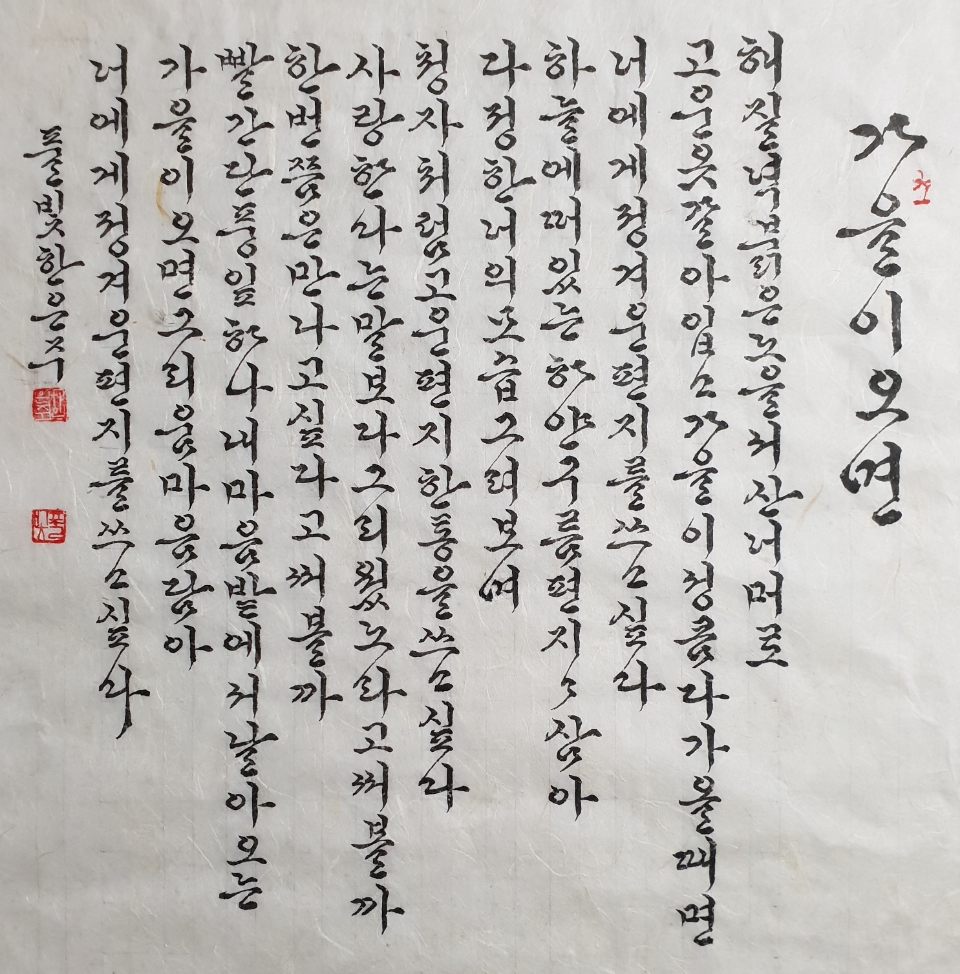 가을이오면
해질녘붉은노을저산너머로
고운옷갈아입고가을이성큼다가올때면
너에게정겨운편지를쓰고싶다
하늘에떠있는하얀구름편지지삼아
다정한너의모습그려보며
청자처럼고운편지한통을쓰고싶다
사랑한다는말보다그리웠노라고써볼까
한번쯤은만나고싶다고써볼까
빨간단풍잎하나내마음밭에서날아오는
가을이오면그리움마음담아
너에게정겨운편지를쓰고싶다
풀빛한은주